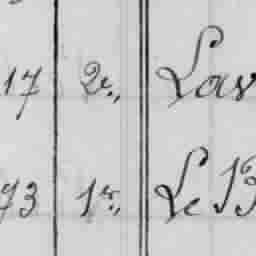 17 2e., Lav
73 1e., Le B